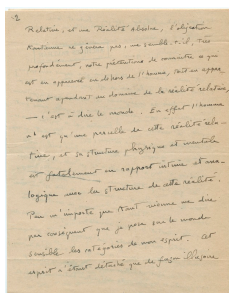 2
Relative, et une Réalité Absolue, l'objection
Kantienne ne génera pas, me semble-t-il, très
profondément, notre prétention de connaître ce qui
est en apparence en dehors de l'homme, tout en appar-
tenant cependant au domaine de la réalité relative,
— c'est à dire le monde. En effet l'homme
n'est qu'une parcelle de cette réalité rela-
tive, et sa structure physique et mentale
est fatalement en rapport intime et ana-
logique avec la structure de cette réalité.
Peu m'importe que Kant vienne me dire
par conséquent que je pose sur le monde
sensible les catégories de mon esprit. Cet
esprit n'étant détaché que de façon illusoire